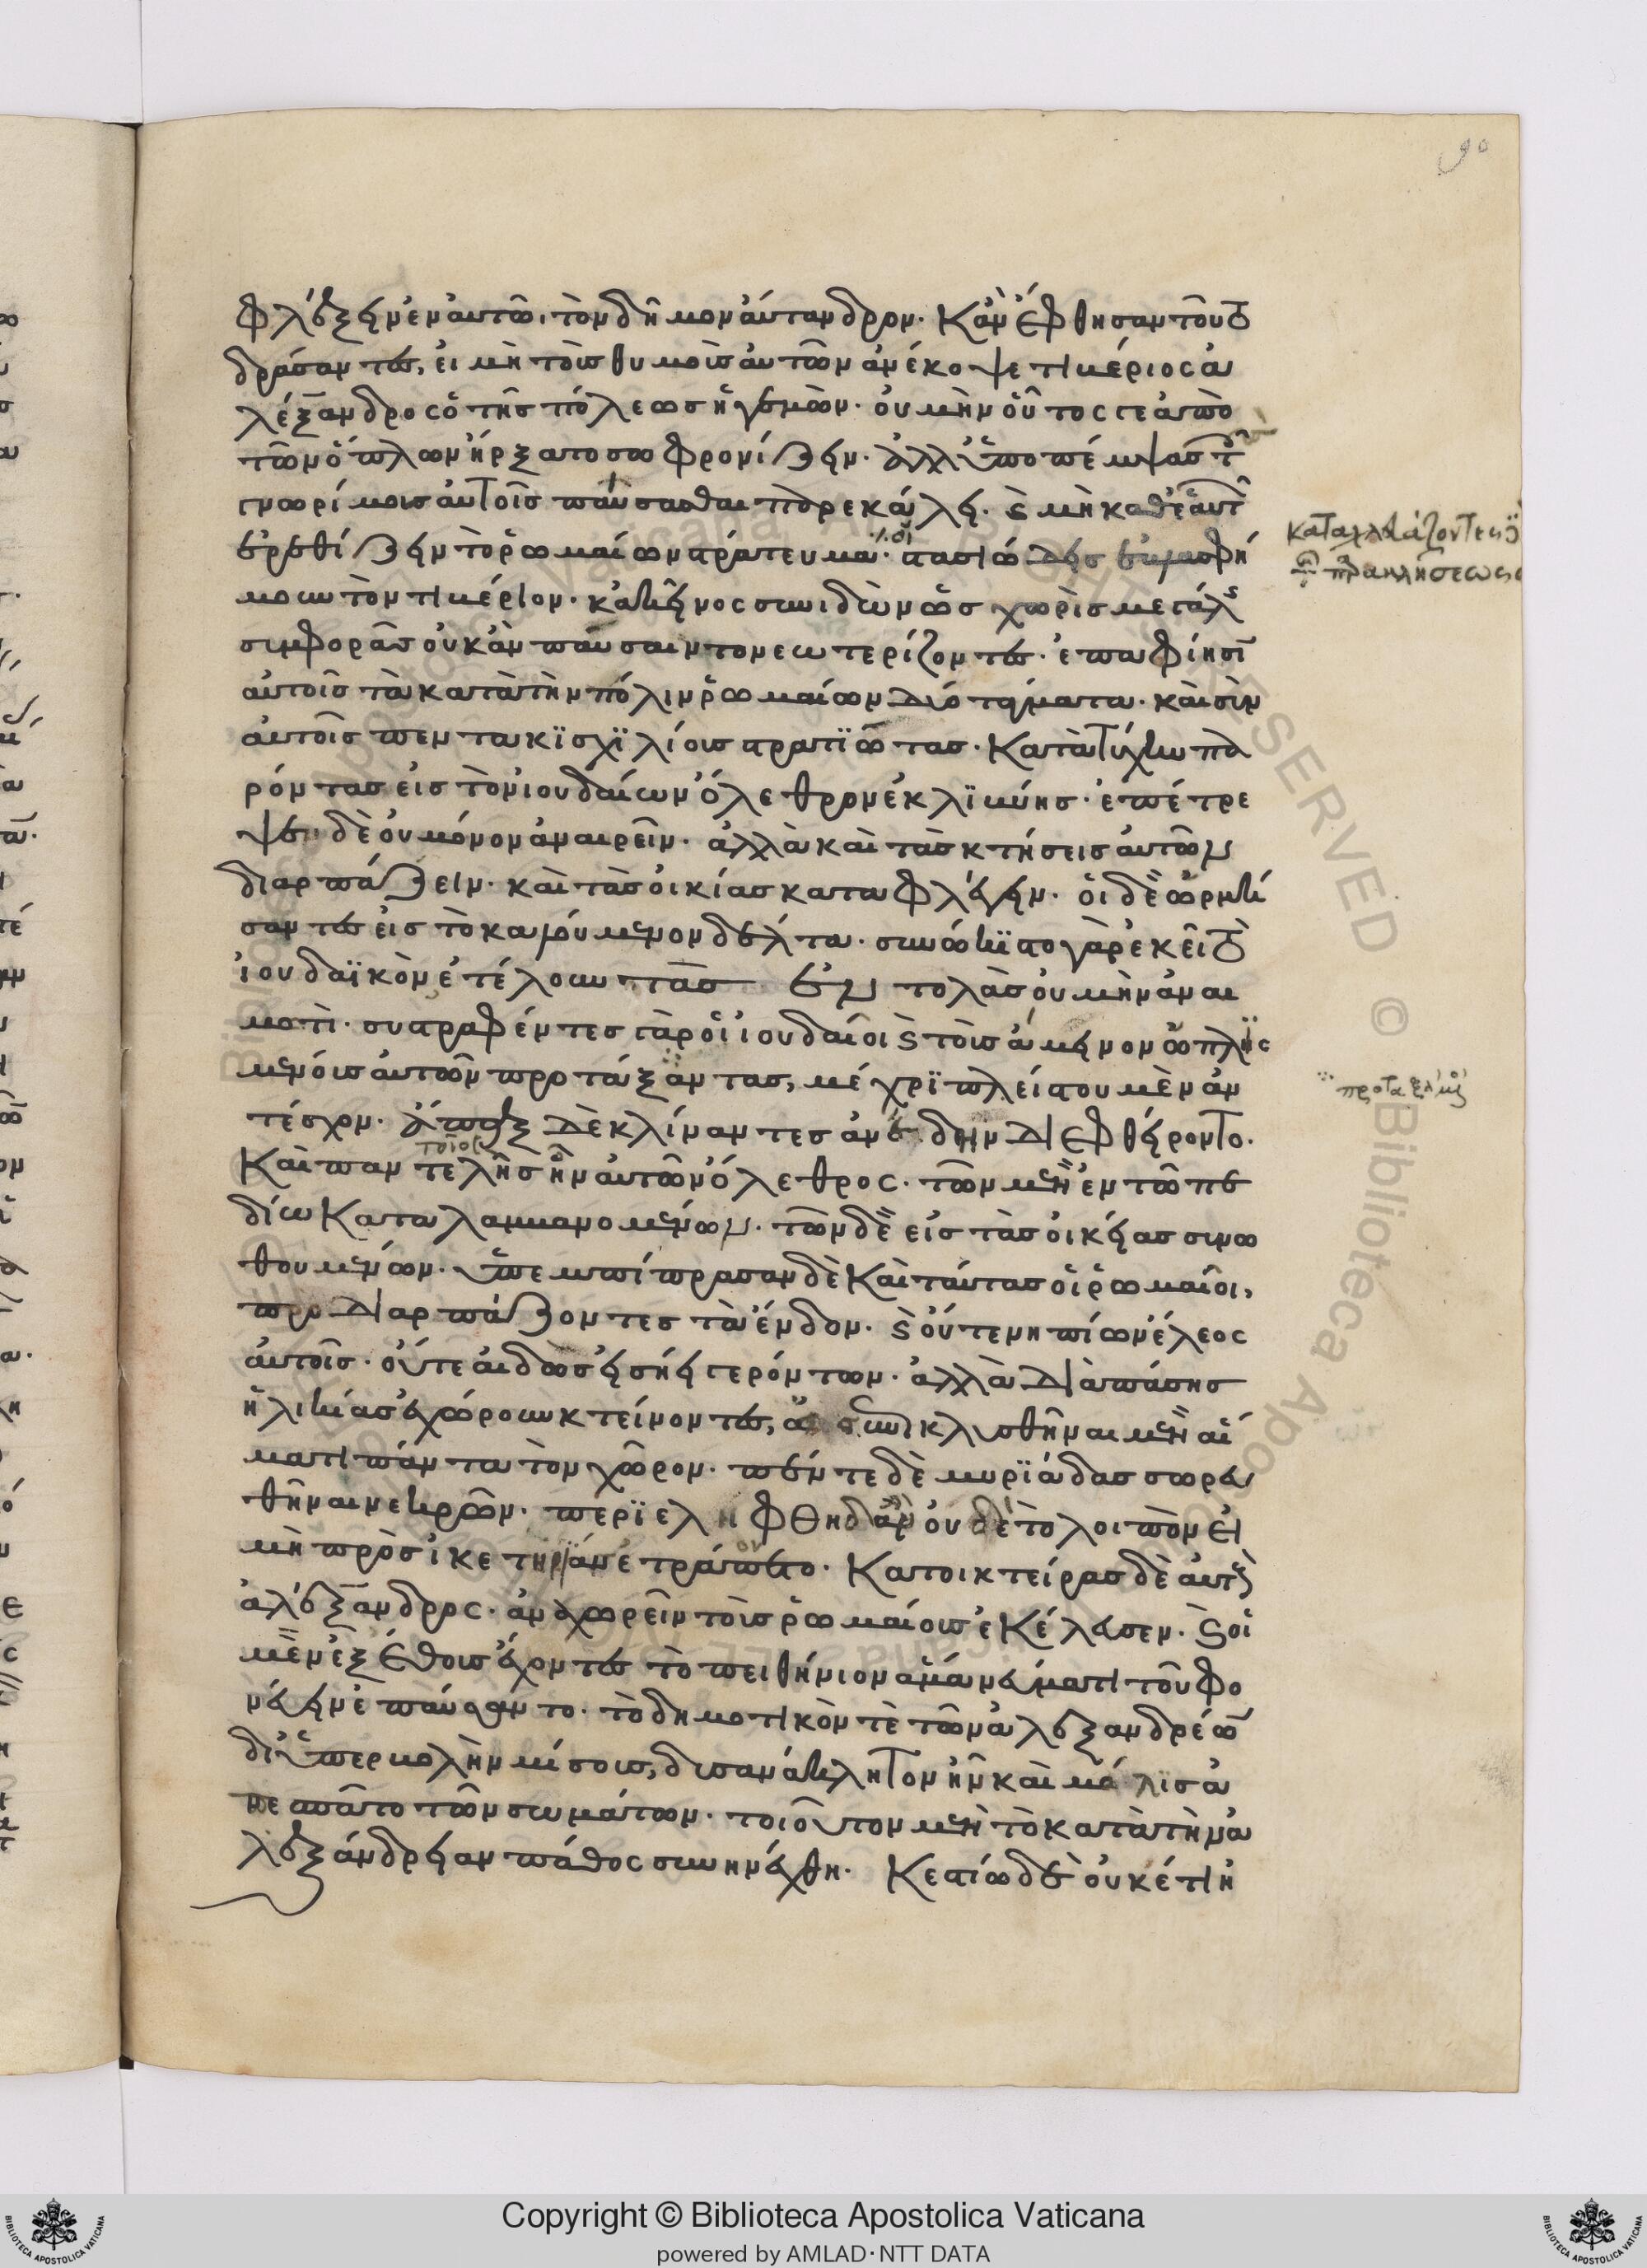 90
φλέξειν ἐν αυτῶ, τὸν δῆμον αὐτανδρον. Κἂν ἔφθησαν τοῦτο
δράσαντες, εἰ μὴ τοὺς θυμοὺς αὐτῶν ἀνέκοψε τιβέριος ἀ
λέξανδρος ὁ τῆς πόλεως ἡγεμών. οὐ μὴν οὗτος γε ἀπὸ
τῶν ὅπλων ἤρξατο σωφρονίζειν. ἀλλ' ὑποπέμψας τοὺς
γνωρίμους αὐτοῖς παύσασθαι παρεκάλει. καὶ μὴ καθ' ἑαυτῶν
ἐρεθίζειν τὸ ῥωμαίων στράτευμα. στασιώδεις
μουν τὸν τιβέριον. κἀκεῖνος συνιδὼν ὡς χωρὶς μεγάλης
συμφορᾶς οὐκ ἂν παύσαιντο νεωτερίζοντες. ἐπαφίησιν
αὐτοῖς τὰ κατὰ τὴν πόλιν ῥωμαίων δύο τάγματα. καὶ σὺν
αὐτοῖς πεντακϊσχϊλίους στρατϊώτας. Κατὰ τύχην πα
ρόντας εἰς τὸν ἰουδαίων ὄλεθρον ἐκ λϊβύης. ἐπέτρε
ψε δὲ οὐ μόνον ἀναιρεῖν. ἀλλὰ καὶ τὰς κτήσεις αὐτῶν
διαρπάζειν. καὶ τὰς οἰκίας καταφλέγειν. οἱ δὲ ὁρμή
σαντες εἰς τὸ καλούμενον δέλτα. συνώκιστο γὰρ ἐκεῖ τὸ
ἰουδαϊκὸν ἐτέλουν τὰς ἐντολὰς οὐ μὴν ἀναι
μωτὶ. συστραφέντες γὰρ οἱ ἰουδαῖοι καὶ τοὺς ἄμεινον ὡπλισ
μένους αὐτῶν προτάξαντας, μέχρϊ πλείστου μὲν ἀν
τέσχον. ἅπαξ δὲ ἐκλίναντες ἀνέδην διεφθείροντο.
τοῖος
Καὶ παντελὴς ἦν αὐτῶν ὄλεθρος. τῶν μὲν ἐν τῶ πε
δίω Καταλαμβανομένων. τῶν δὲ εἰς τὰς οἰκείας συνω
θουμένων. ὑπεμπίπρασαν δὲ Καὶ ταύτας οἱ ῥωμαῖοι,
προδιαρπάζοντες τὰ ἔνδον. καὶ οὔτε νηπίων ἔλεος
αὐτοῖς. οὔτε αἰδὼς εἰσήει γερόντων. ἀλλὰ διὰ πάσης
ἡλικίας ἐχώρουν κτείνοντες, ὡς ἐπικλυσθῆναι μὲν αἵ
ματι πάντα τὸν χῶρον. πέντε δὲ μυρϊάδας σωρευ
θῆναι νεκρῶν. περϊελήφθη δ' ἂν οὐδὲ τὸ λοιπὸν εἰ
μὴ πρὸς ἱκετηρίαν ἐτράποντο. Κατοικτείρας δὲ αὐτοὺς
ἀλέξανδρος. ἀναχωρεῖν τοῖς ῥωμαίοις ἐκέλευσεν. καὶ οἱ
μὲν ἐξ ἔθους ἔχοντες τὸ πειθήνιον ἅμα νεύματι τοῦ φο
νεύειν ἐπαύσαντο. τὸ δημοτικὸν τὲ τῶν ἀλεξανδρέων
δι' ὑπερβολὴν μίσους, δυσανάκλητον ἦν καὶ μόλις ἀ
πεσπᾶτο τῶν σωμάτων. τοιοῦτον μὲν τὸ κατὰ τὴν ἀ
λεξάνδρειαν πάθος συνηνέχθη. Κεστίω δὲ οὐκέτι ἠ